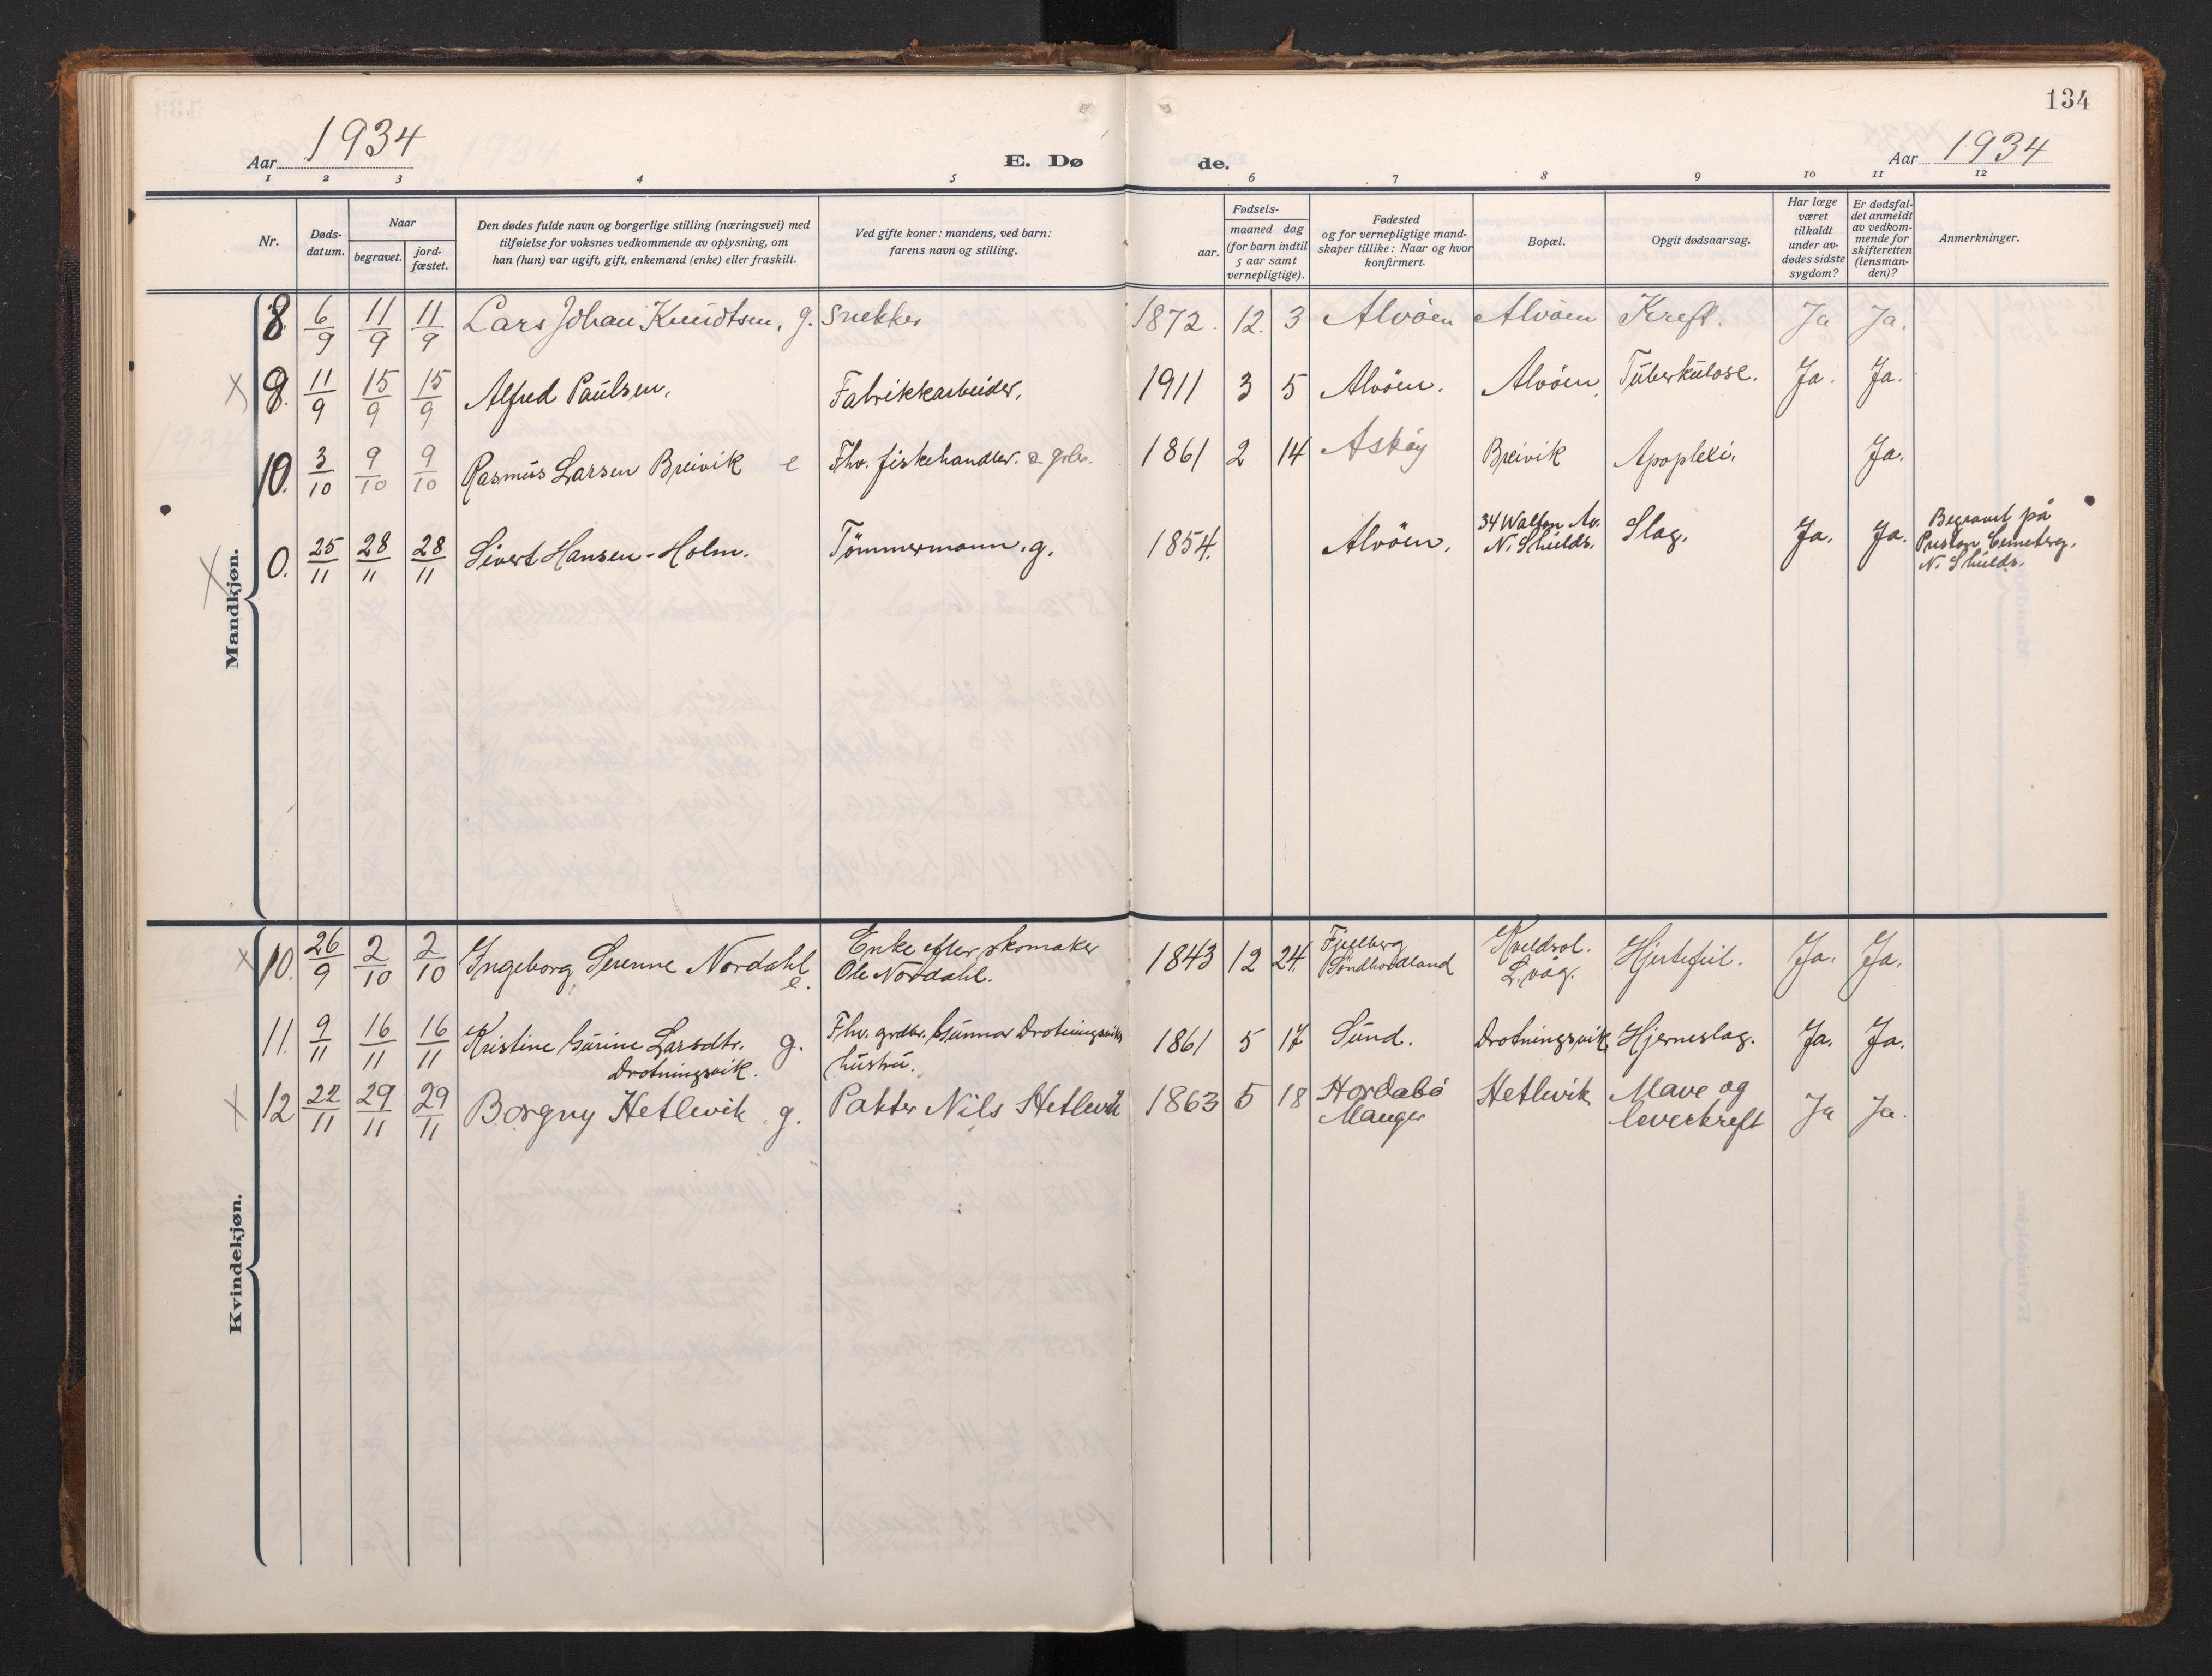 134
Aar 1934
E. Dø
de.
Aar 1934
1 2 3 4 5 6 7 8 9 10 11 12
Nr.
Døds-
datum.
Naar
begravet.
jord-
fæstet.
Den dødes fulde navn og borgerlige stilling (næringsvei) med
tilføielse for voksnes vedkommende av oplysning, om
han (hun) var ugift, gift, enkemand (enke) eller fraskilt.
Ved gifte koner: mandens, ved barn:
farens navn og stilling.
Fødsels-
aar.
maaned dag
(for barn indtil
5 aar samt
vernepligtige).
Fødested
og for vernepligtige mand-
skaper tillike: Naar og hvor
konfirmert.
Bopæl.
Opgit dødsaarsag.
Har læge
været
tilkaldt
under av-
dødes sidste
sygdom?
Er dødsfal-
det anmeldt
av vedkom-
mende for
skifteretten
(lensman-
den)?
Anmerkninger.
Mandkjøn.
8. 6/9 11/9 11/9 Lars Johan Knudtsen, g. Snekker 1872. 12. 3 Alvöen Alvöen Kreft. Ja Ja.
X 9. 11/9 15/9 15/9 Alfred Paulsen. Fabrikkarbeider. 1911 3 5 Alvöen. Alvöen. Tuberkulose. Ja. Ja.
10. 3/10 9/10 9/10 Rasmus Larsen Breivik e Fhv. fiskehandler. 1861 2 14 Askøy Breivik Apoplexi. Ja.
X 0. 25/11 28/11 28/11 Sivert Hansen-Holm. Tømmermann. g. 1854. Alvöen. 34 Walton Av.
N. Shields. Slag. Ja. Ja. Begravet på
Preston Cemetery.
N. Shields.
Kvindekjøn.
X 10. 26/9 2/10 2/10 Ingeborg Serenne Nordahl e. Enke efter skomaker
Ole Nordahl. 1843 12 24. Fjelberg
Søndhordland Kveldsol.
L.våg. Hjertefeil. Ja. Ja.
11. 9/11 16/11 16/11 Kristine Gurine Larsdtr. g.
Drotningsvik. Fhv. grdbr. Gunnar Drotningsviks
hustru. 1861 5 17 Sund. Drotningsvik Hjerneslag. Ja. Ja.
X 12 22/11 29/11 29/11 Borgny Hetlevik g. Pakter Nils Hetlevik 1863 5 18 Hordabø
Manger Hetlevik Mave og
leverkreft Ja Ja.